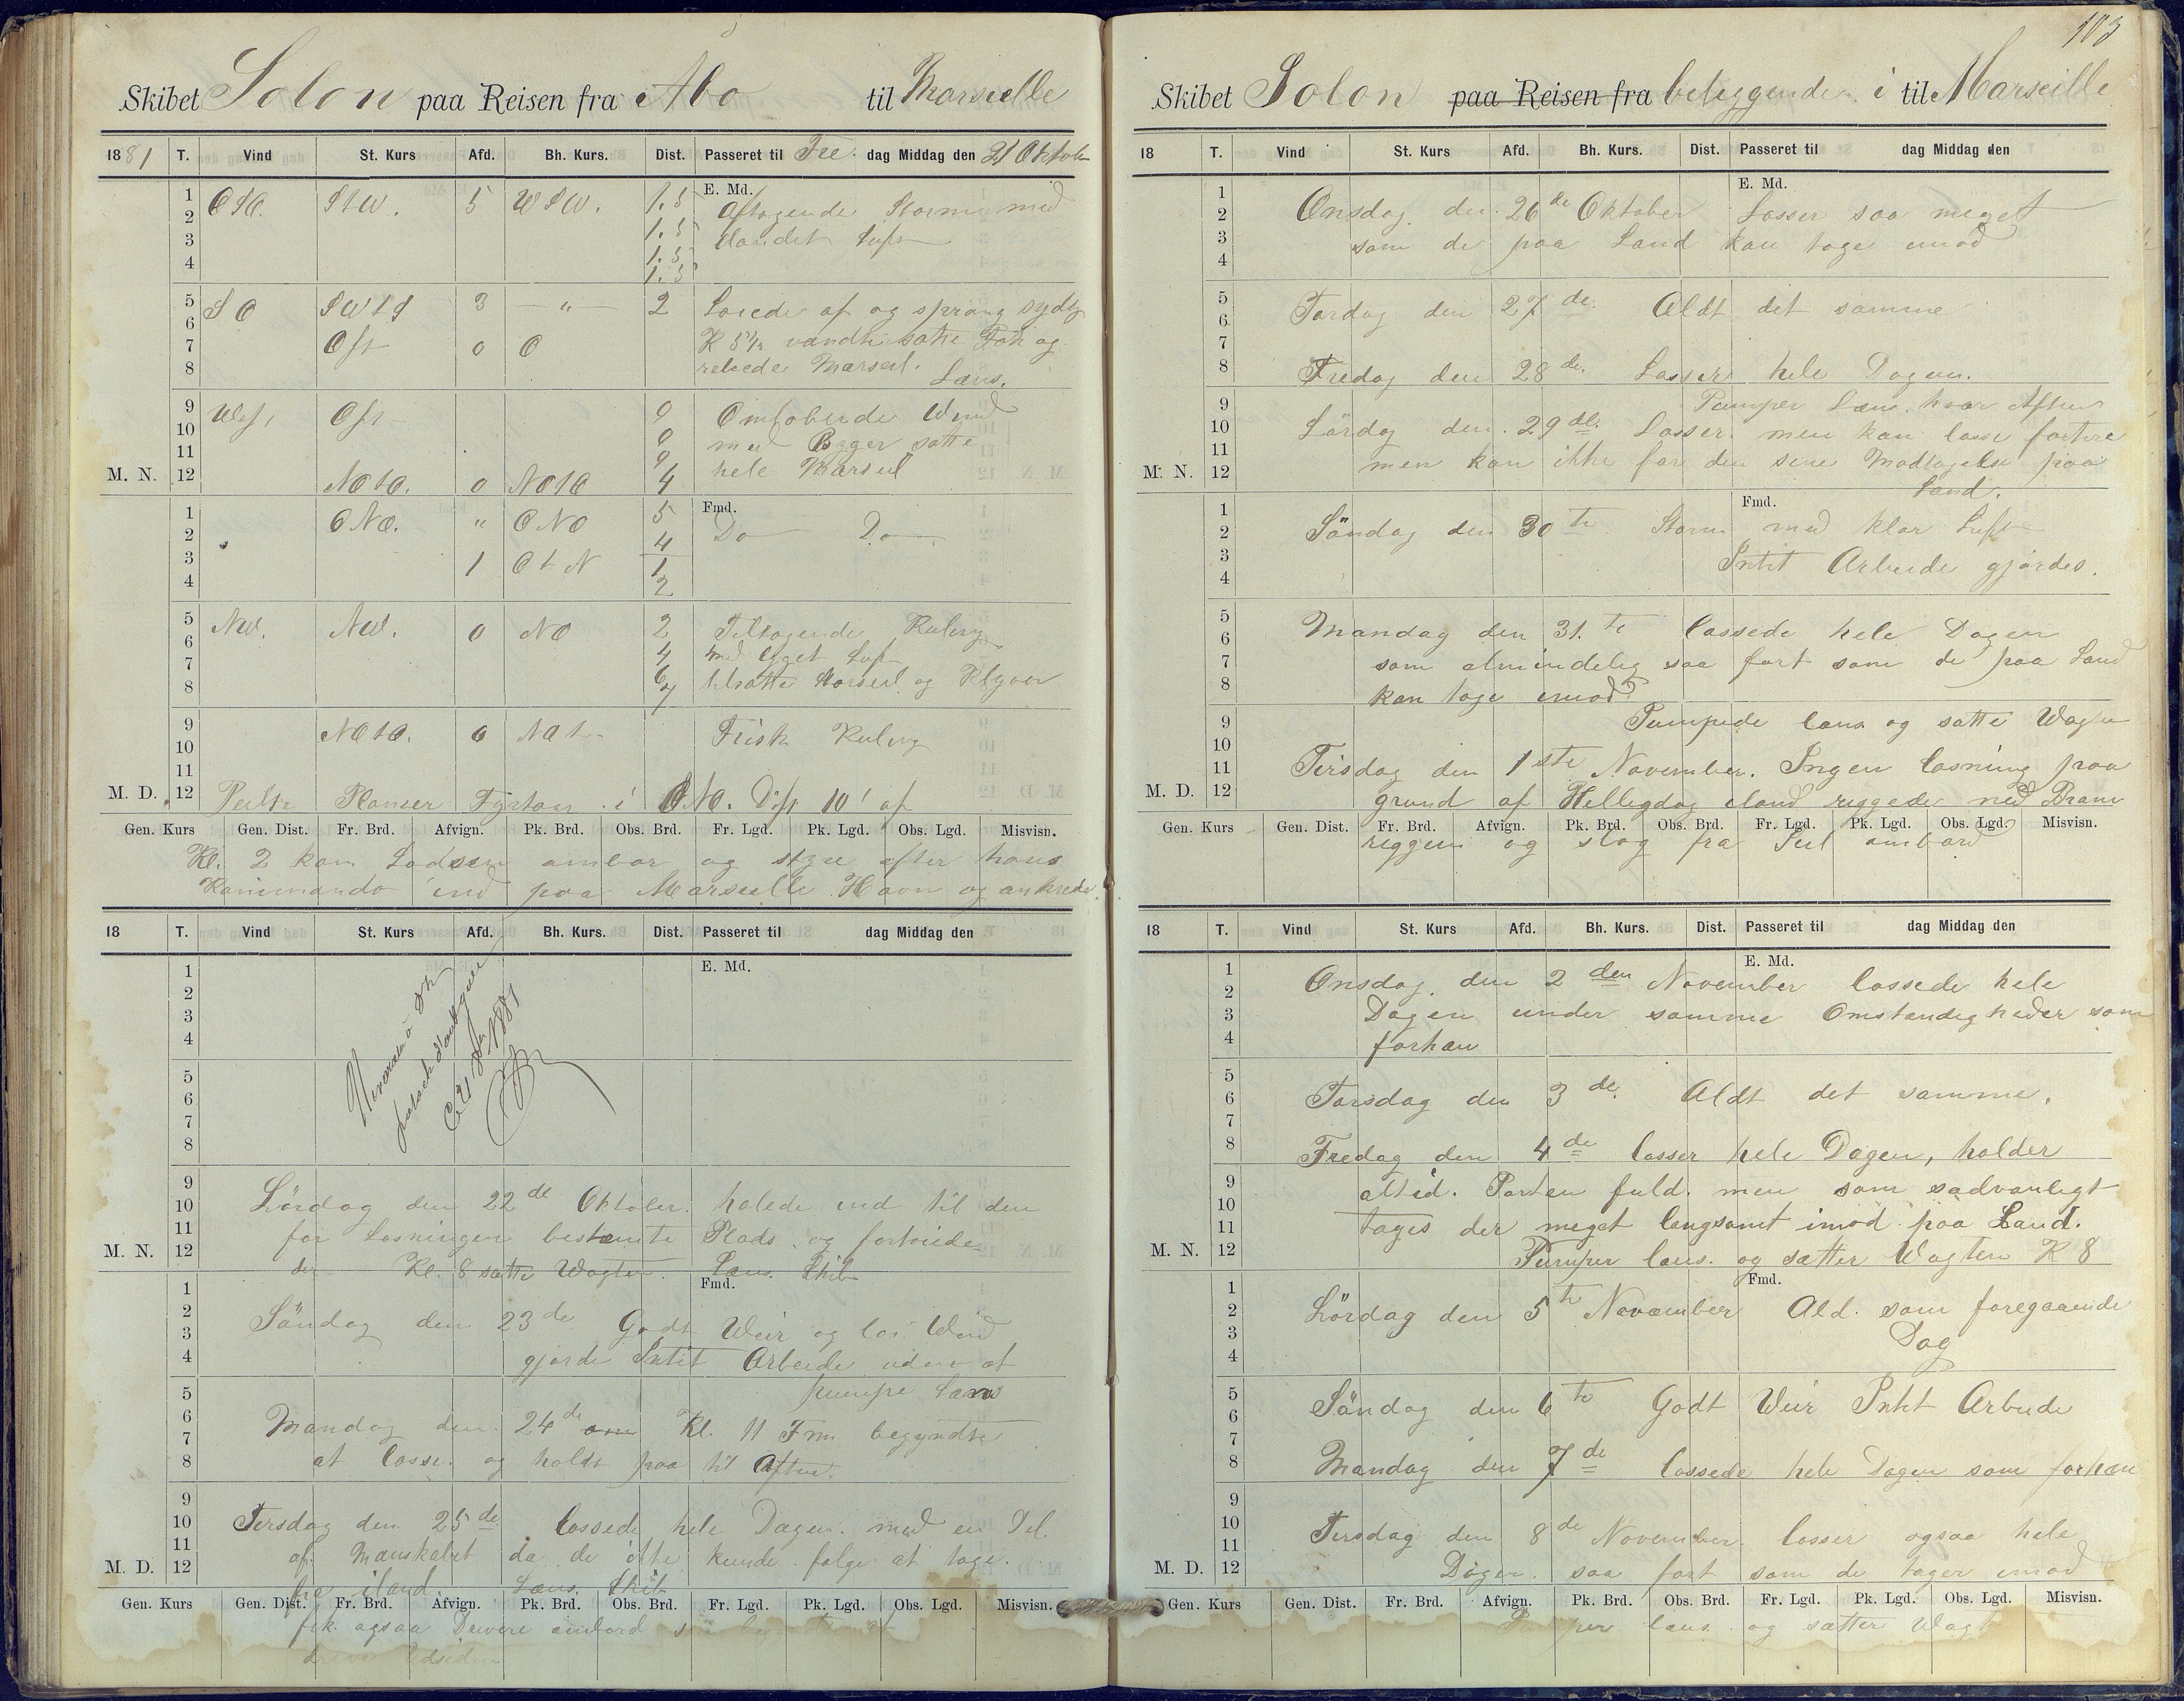 Skibet Solon paa Reisen fra Abo til Marseille
1881 T. Vind St. Kurs Afd. Bh. Kurs. Dist. Passeret til Fre dag Middag den 21 Oktober
E. Md.
1 OSO. StW. 5 WSW. 1.5 Aftagende Storm med
2 1.5 Luft
3 1.5
4 1.5
5 SO SWtS 3 — " — 2 Loiede af og sprang sydlig
6 K 5½ vendte satte Fok og
7 Ost 0 O rebede Marseil.
8 Læns.
9 West Ost 0 Omløbende Wind
10 0 med Byger satte
11 0 hele Marseil
M. N. 12 NOtO. 0 NOtO 4
Fmd.
1 ONO. " ONO 5 Do — Do
2 4
3 1 OtN 1
4 2
5 NW. NW. 0 NO 2 Tiltagende Kuling
6 4 med Luft
7 6 tilsatte Storseil og Klyver
8 7
9 NOtO. 0 Frisk Kuling
10
11
M. D. 12 Peilte Planier Fyrtaar i ONO. Dist 10' af
Gen. Kurs Gen. Dist. Fr. Brd. Afvign. Pk. Brd. Obs. Brd. Fr. Lgd. Pk. Lgd. Obs. Lgd. Misvisn.
Kl. 2 kom Lodsen ombor og styre efter hans
Kommando ind paa Marseille Havn og ankrede.
18 T. Vind St. Kurs Afd. Bh. Kurs. Dist. Passeret til dag Middag den
E. Md.
1
2
3
4
5
6
7
8
1881
9
10 Lördag den 22de Oktober. halede ind til den
11 for Losningen bestemte Plads og fortøiede
M. N. 12 der Kl. 8 satte Wagten. Læns Skib
Fmd.
1
2 Söndag den 23de Godt Weir og loi Wind
3
4 gjorde Intit Arbeide uden at
5 pumpe Læns
6 Mandag den 24de Kl. 11 Fm begyndte
7
8 at losse. og holdt paa til Aften.
9
10 Tirsdag den 25de lossede hele Dagen. med en Del.
11
M. D. 12 af Manskabet da de ikke kunde folge at tage.
fra iland. Læns Skib
Gen. Kurs Gen. Dist. Fr. Brd. Afvign. Pk. Brd. Obs. Brd. Fr. Lgd. Pk. Lgd. Obs. Lgd. Misvisn.
fik ogsaa ombord
103
Skibet Solon paa Reisen fra beliggende i til Marseille
18 T. Vind St. Kurs Afd. Bh. Kurs. Dist. Passeret til dag Middag den
E. Md.
1
2 Onsdag. den 26de Oktober Losser saa meget
3 som de paa Land kan tage imod
4
5
6 Torsdag den 27de. Aldt det samme
7
8 Fredag den 28de. Losser hele Dagen.
9 Pumper Læns. hver Aften
10 Lördag den. 29de. Losser. men kan losse fortere
11 men kan ikke for den sene Modtagelse paa
M. N. 12 Land.
Fmd.
1
2 Söndag den 30te Storm med klar Luft
3 Intit Arbeide gjordes.
4
5
6 Mandag den 31.te lossede hele Dagen
7 som almindelig saa fort som de paa Land
8 kan tage imod
9 Pumpede læns og satte Wagten
10
11 Tirsdag den 1ste November. Ingen losning paa
M. D. 12 grund af Helligdag iland riggede ned Bram
Gen. Kurs Gen. Dist. Fr. Brd. Afvign. Pk. Brd. Obs. Brd. Fr. Lgd. Pk. Lgd. Obs. Lgd. Misvisn.
riggen og slog fra Seil ombord
18 T. Vind St. Kurs Afd. Bh. Kurs. Dist. Passeret til dag Middag den
E. Md.
1
2 Onsdag. den 2den November lossede hele
3 Dagen under samme Omstændigheder som
4 forhen
5
6 Torsdag den 3de. Aldt det samme.
7
8 Fredag den 4de losser hele Dagen, holder
9 altid. Porten fuld. men som sædvanligt
10
11 tages der meget langsomt imod paa Land.
M. N. 12 Pumper læns. og sætter Wagten K 8
Fmd.
1
2 Lördag den 5te November Ald. som foregaaende
3 Dag
4
5
6 Söndag den 6te Godt Weir Intit Arbeide
7
8 Mandag den 7de lossede hele Dagen som forhen
9
10 Tirsdag den 8de November. losser ogsaa hele
11
M. D. 12 Dagen. saa fort som de tager imod
Gen. Kurs Gen. Dist. Fr. Brd. Afvign. Pk. Brd. Obs. Brd. Fr. Lgd. Pk. Lgd. Obs. Lgd. Misvisn.
Pumper læns. og sætter Wagt